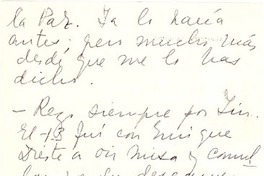 la Paz. Ya lo hacía
antes: pero mucho más
desde que me lo has
dicho.
- Rezo siempre por Tin.
El 13 fui con Enrique
a oir misa y comul